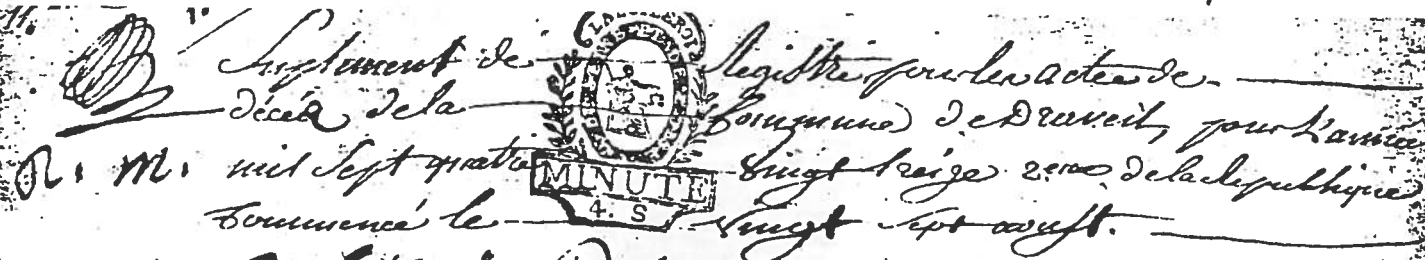 1er
Suplement de Registre pour les actes de
décès de la Commune de Draveil, pour L'année
R. M. mil Sept quatre vingt treize 2eme de la Republique
Commencé le vingt Sept aoust.
LA LOI LE ROI
MINUTE
4. S